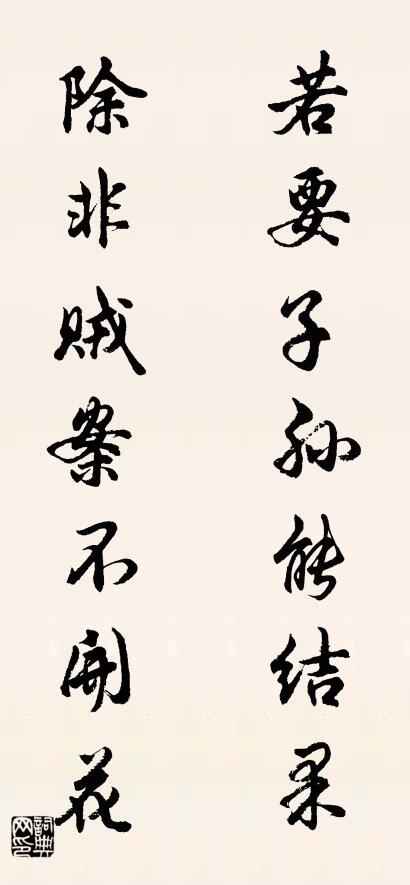 若要子孙能结果
除非贼案不开花
詞典网印